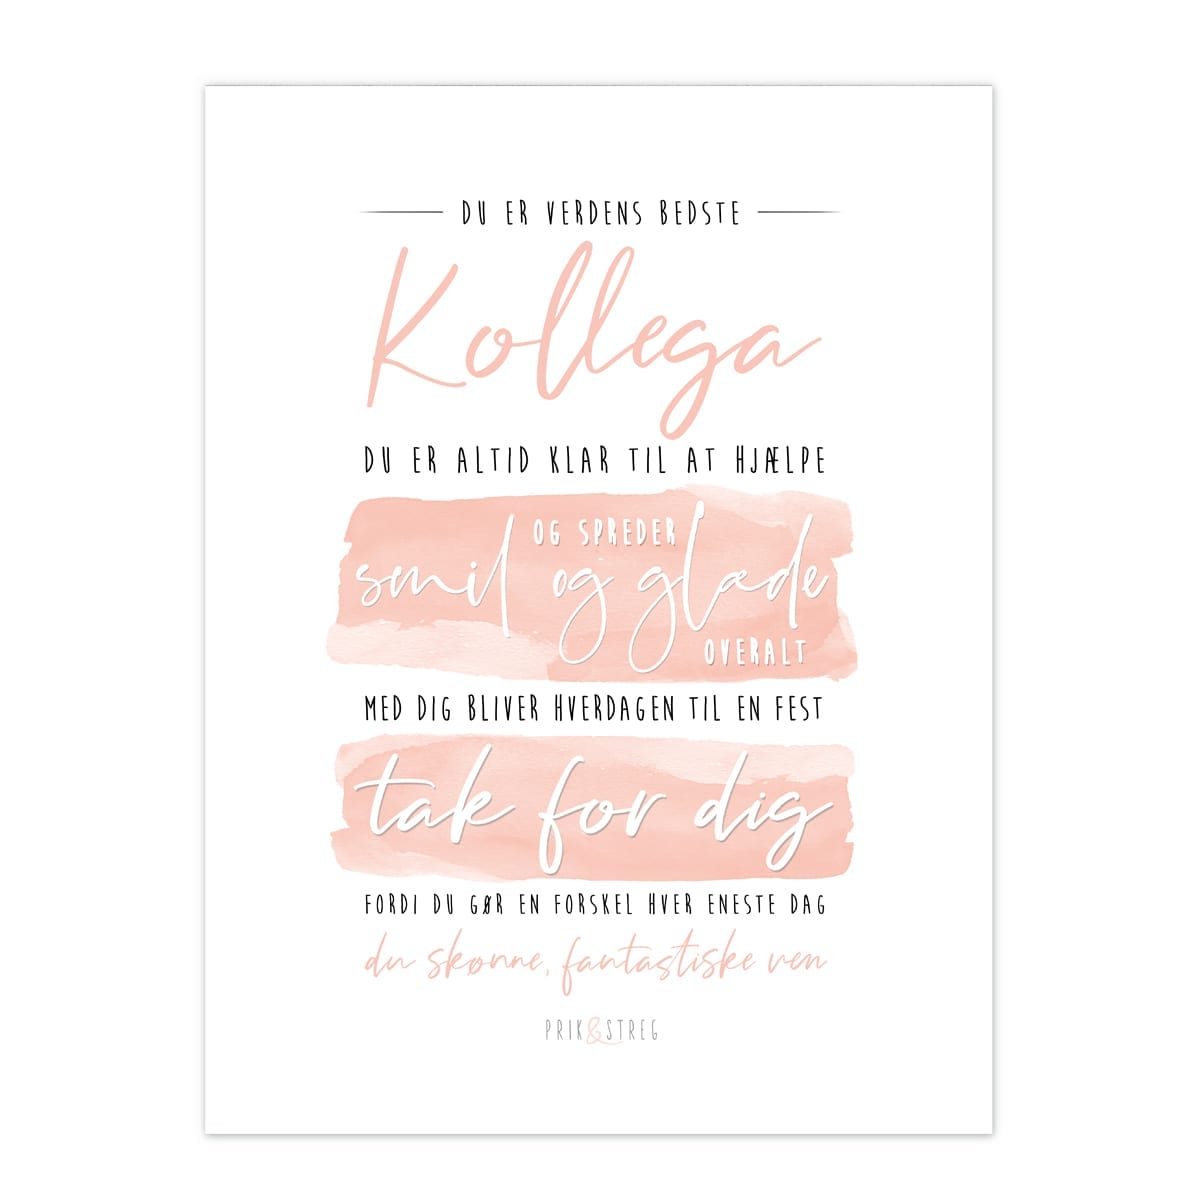 DU ER VERDENS BEDSTE
Kollega
DU ER ALTID KLAR TIL AT HJÆLPE
OG SPREDER
smil og glæde
OVERALT
MED DIG BLIVER HVERDAGEN TIL EN FEST
tak for dig
FORDI DU GØR EN FORSKEL HVER ENESTE DAG
du skønne, fantastiske ven
PRIK&STREG